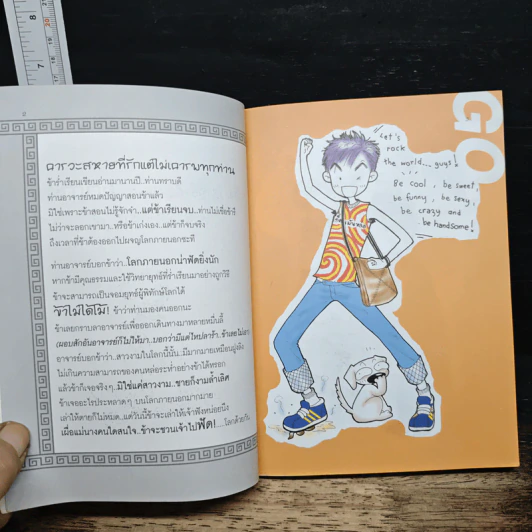 คารวะสหายที่รักแต่ไม่เคารพทุกท่าน
ข้าร่ำเรียนเขียนอ่านมานานปี..ท่านทราบดี
ท่านอาจารย์หมดปัญญาสอนข้าแล้ว
มิใช่เพราะข้าสอนไม่รู้จักจำ..แต่ข้าเรียนจบ..ท่านไม่เชื่อข้ารึ
ไม่ว่าจะลอกเขามา..หรือข้าเก่งเอง..แต่ข้าก็จบจริง
ถึงเวลาที่ข้าต้องออกไปผจญโลกภายนอกซะที
ท่านอาจารย์บอกข้าว่า..โลกภายนอกน่าพัดยิ่งนัก
หากข้ามีคุณธรรมและใช้วิทยายุทธ์ที่ร่ำเรียนมาอย่างถูกวิธี
ข้าจะสามารถเป็นจอมยุทธ์ผู้พิทักษ์โลกได้
ข้าว่าท่านมองคนออกนะ
ข้าเลยกราบลาอาจารย์เพื่อออกเดินทางมาหลายหมื่นลี้
(ผอมสักอันอาจารย์ก็ไม่ให้มา..บอกว่ามีแต่ไหปลาร้า..ข้าเลย
อาจารย์บอกข้าว่า..สาวงามในโลกนี้นั้น..มีมากมายเหมือนฝูงผึ้ง
ไม่เกินความสามารถของคนหล่อระห่ำอย่างข้าได้หรอก
แล้วข้าก็เจอจริงๆ..มิใช่แค่สาวงาม..ชายก็งามล้ำเลิศ
ข้าเจออะไรประหลาดๆ บนโลกภายนอกมากมาย
เล่าให้ตายก็ไม่หมด..แต่วันนี้ข้าจะเล่าให้เจ้าฟังหน่อยนึง
เผื่อแม่นางคนใดสนใจ..ข้าจะชวนเจ้าไปพัด!....โลกด้วยกัน
GO
Let's
rock
the world.... guys!
Be cool , be sweet,
be funny , be sexy,
be crazy and
be handsome!
7
8
20